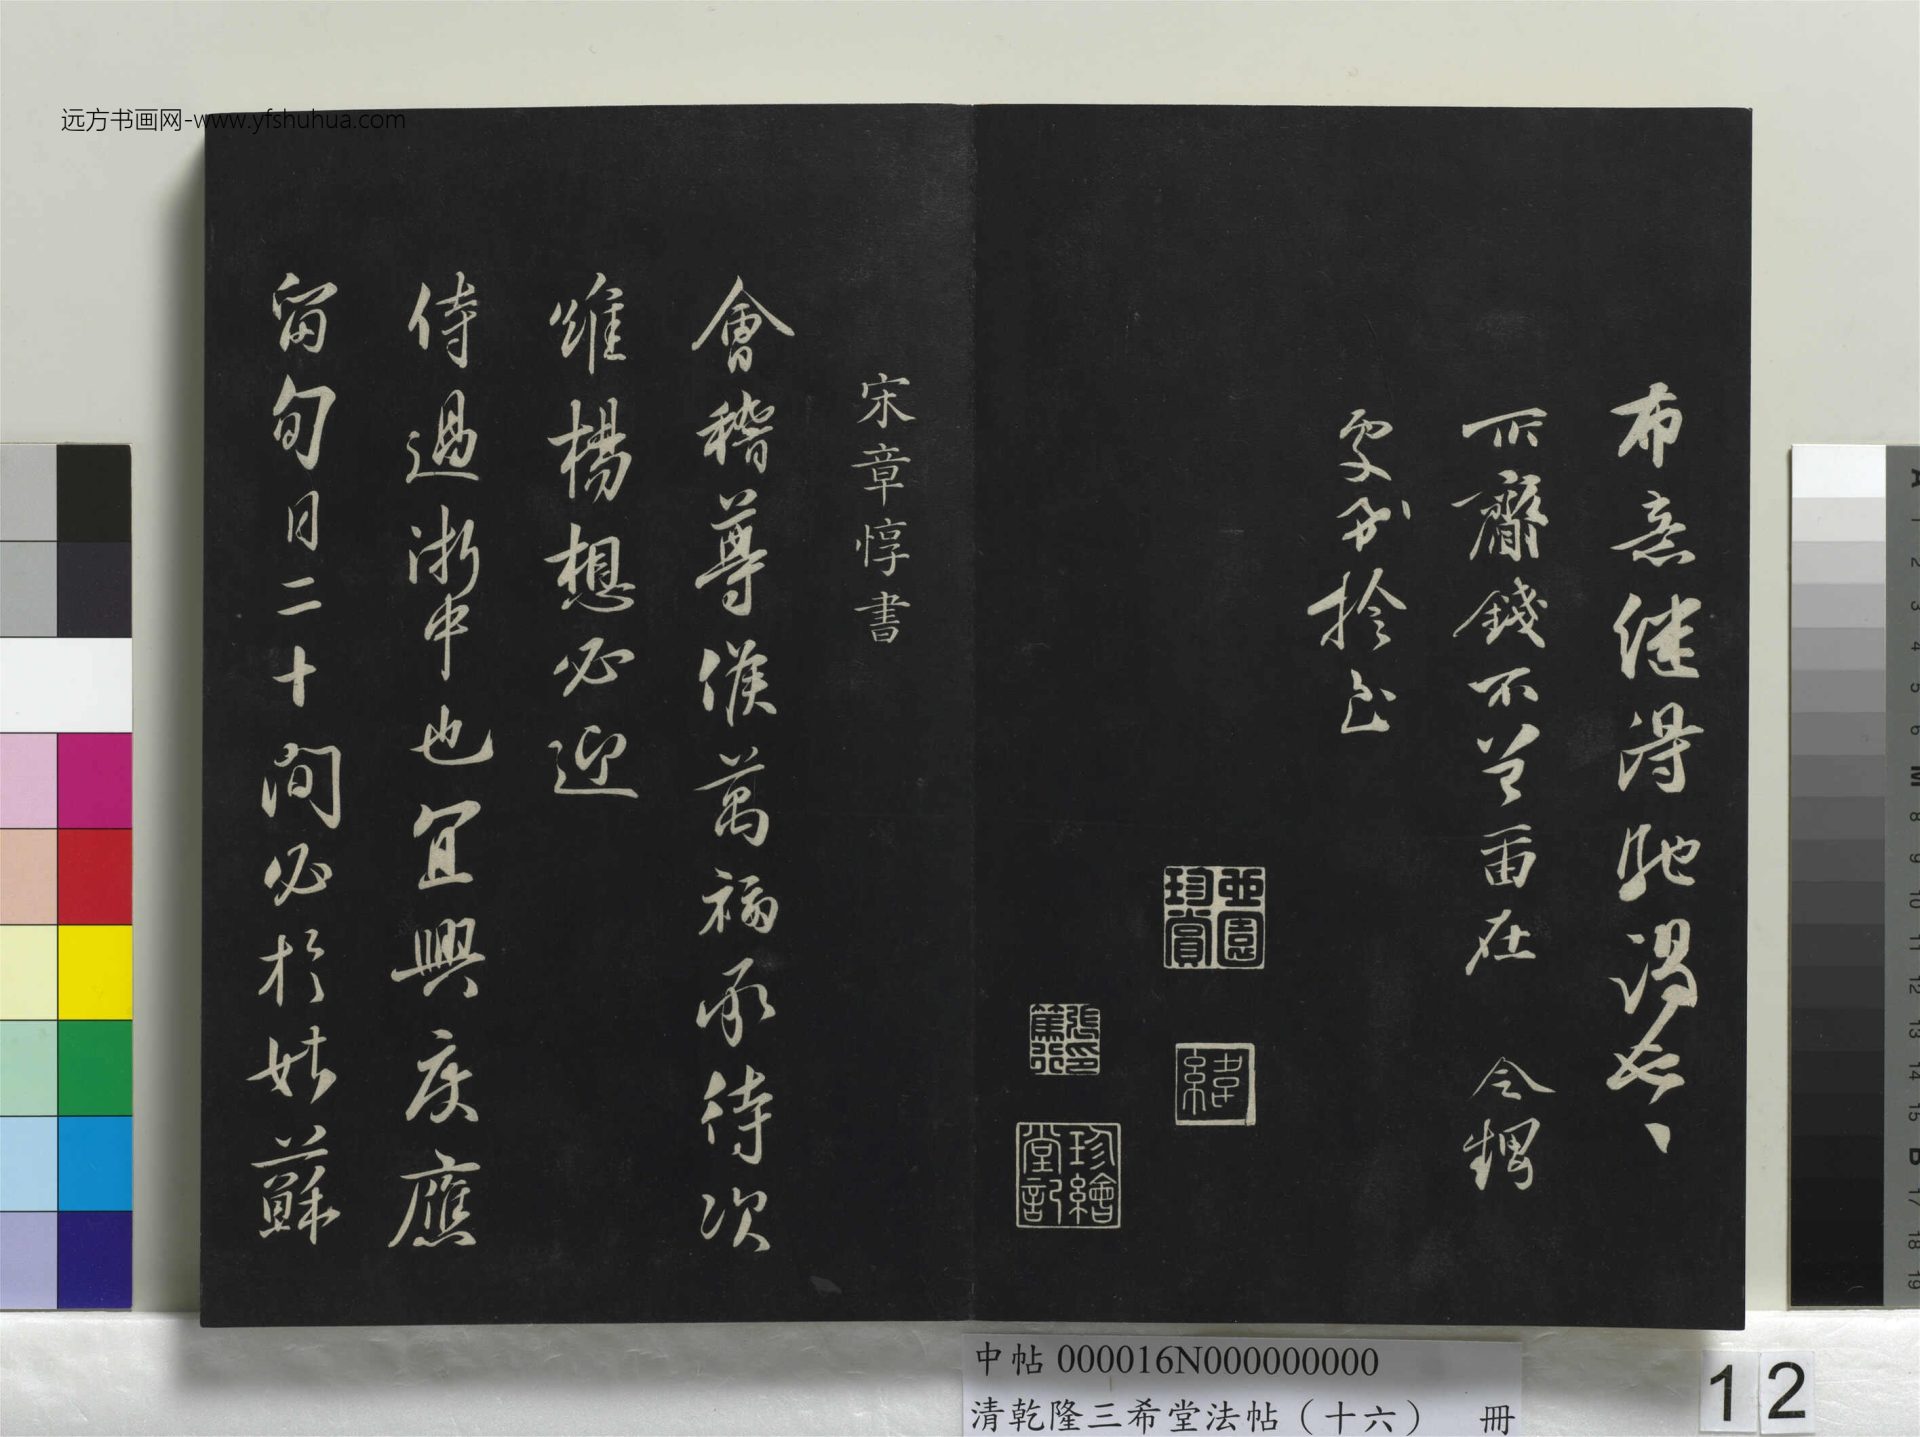 远方书画网-www.yfshuhua.com
布意继得驰渴
所齎錢不曾留在 令
處 拴
亞園珍賞
緯
珍繪堂記
宋章惇書
會稽尊候萬福承待次
維楊想必迎
侍過浙中也宜興度應
留旬日二十間必於姑蘇
中帖 000016N000000000
清乾隆三希堂法帖（十六） 冊
12